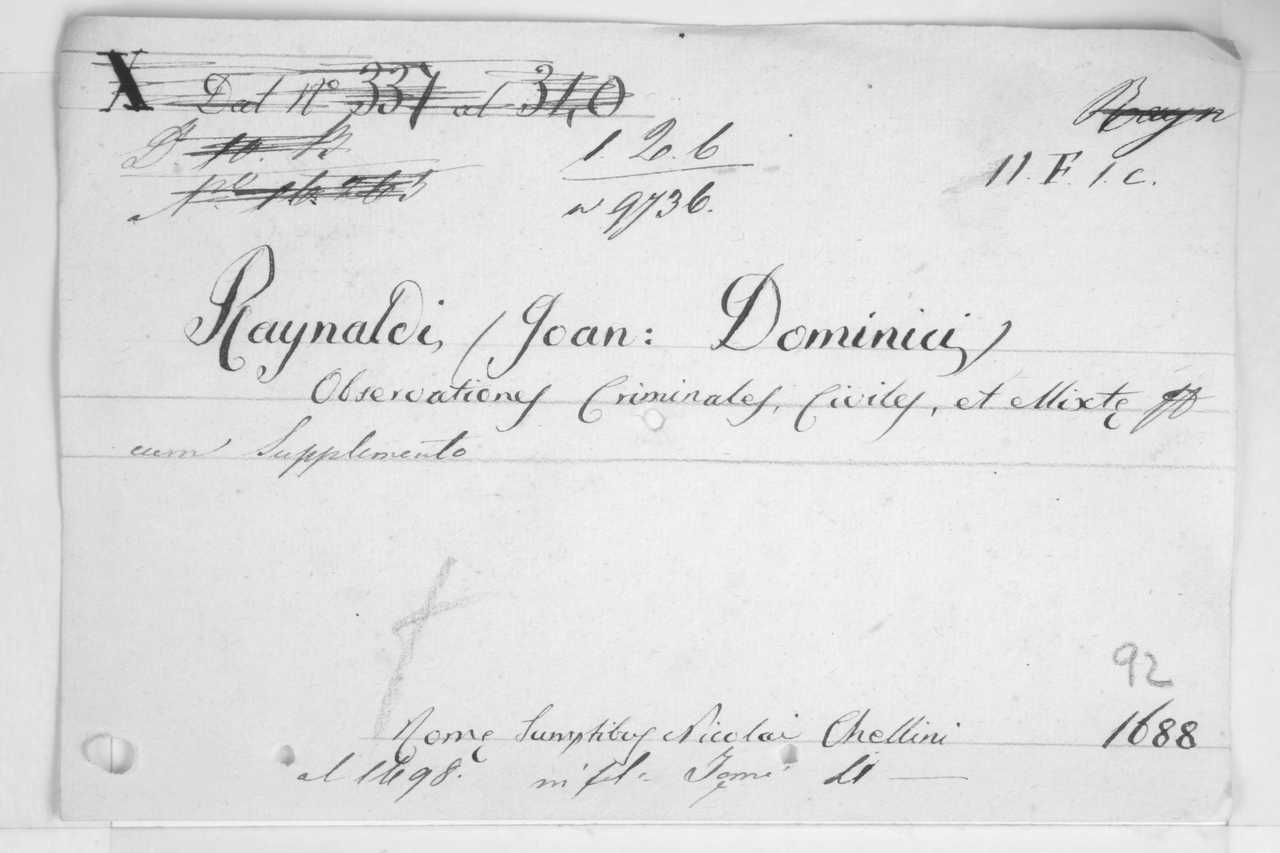 X Dal Nº 337 al 340
Rayn
D. 10. 1. 2. 6
11. F. 1. c.
9736.
Raynaldi, (Joan: Dominici)
Observationes Criminales, Civiles, et Mixtę
cum Supplemento
92
Romę Sumptibus Nicolai Chellini 1688
al 1698. in fol.